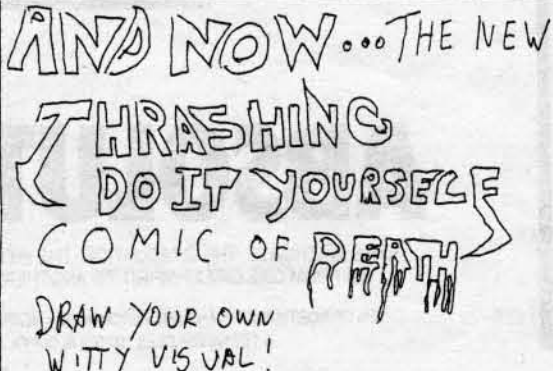 AND NOW...THE NEW
THRASHING
DO IT YOURSELF
COMIC OF DEATH
DRAW YOUR OWN
WITTY VISUAL!